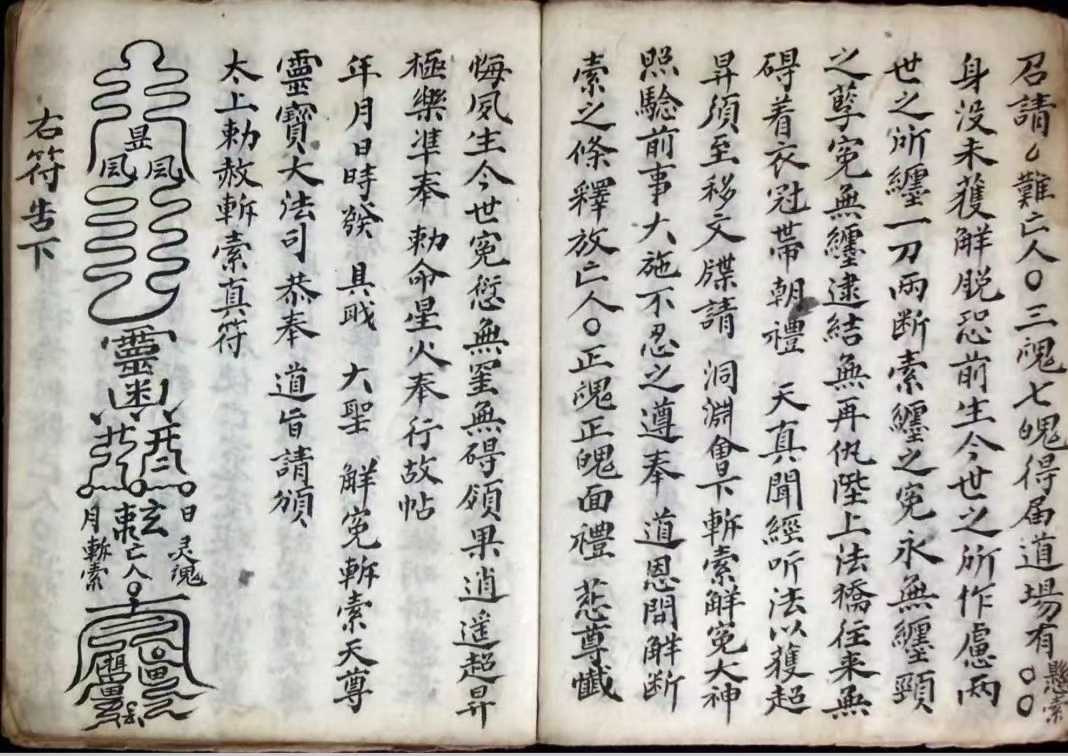 召請乚難亡人〇三魂七魄得届道場有〇〇懸索
身没未獲解脱恐前生今世之所作慮兩
世之所纏一刀兩断索纏之寃永無纏頸
之孽寃無纒逮結無再仇陛上法橋往来無
碍着衣冠世帶朝禮 天真聞經听法以獲超
昇須至移文牒請 洞淵會下斬索解寃大神
照驗前事大施不忍之遵奉 道恩問解断
索之條釋放亡人〇正魂正魄面禮慈尊懺
悔夙生今世寃愆無罣無碍領果逍遥超昇
極樂準奉 勅命星火奉行故帖
年月日時發 具戢 大聖 解寃斬索天尊
靈寳大法司 恭奉 道旨請頒
太上勅赦斬索真符
昱
風 風
靈
日 月
玄
灵魂
亡人〇
斬索
右符告下